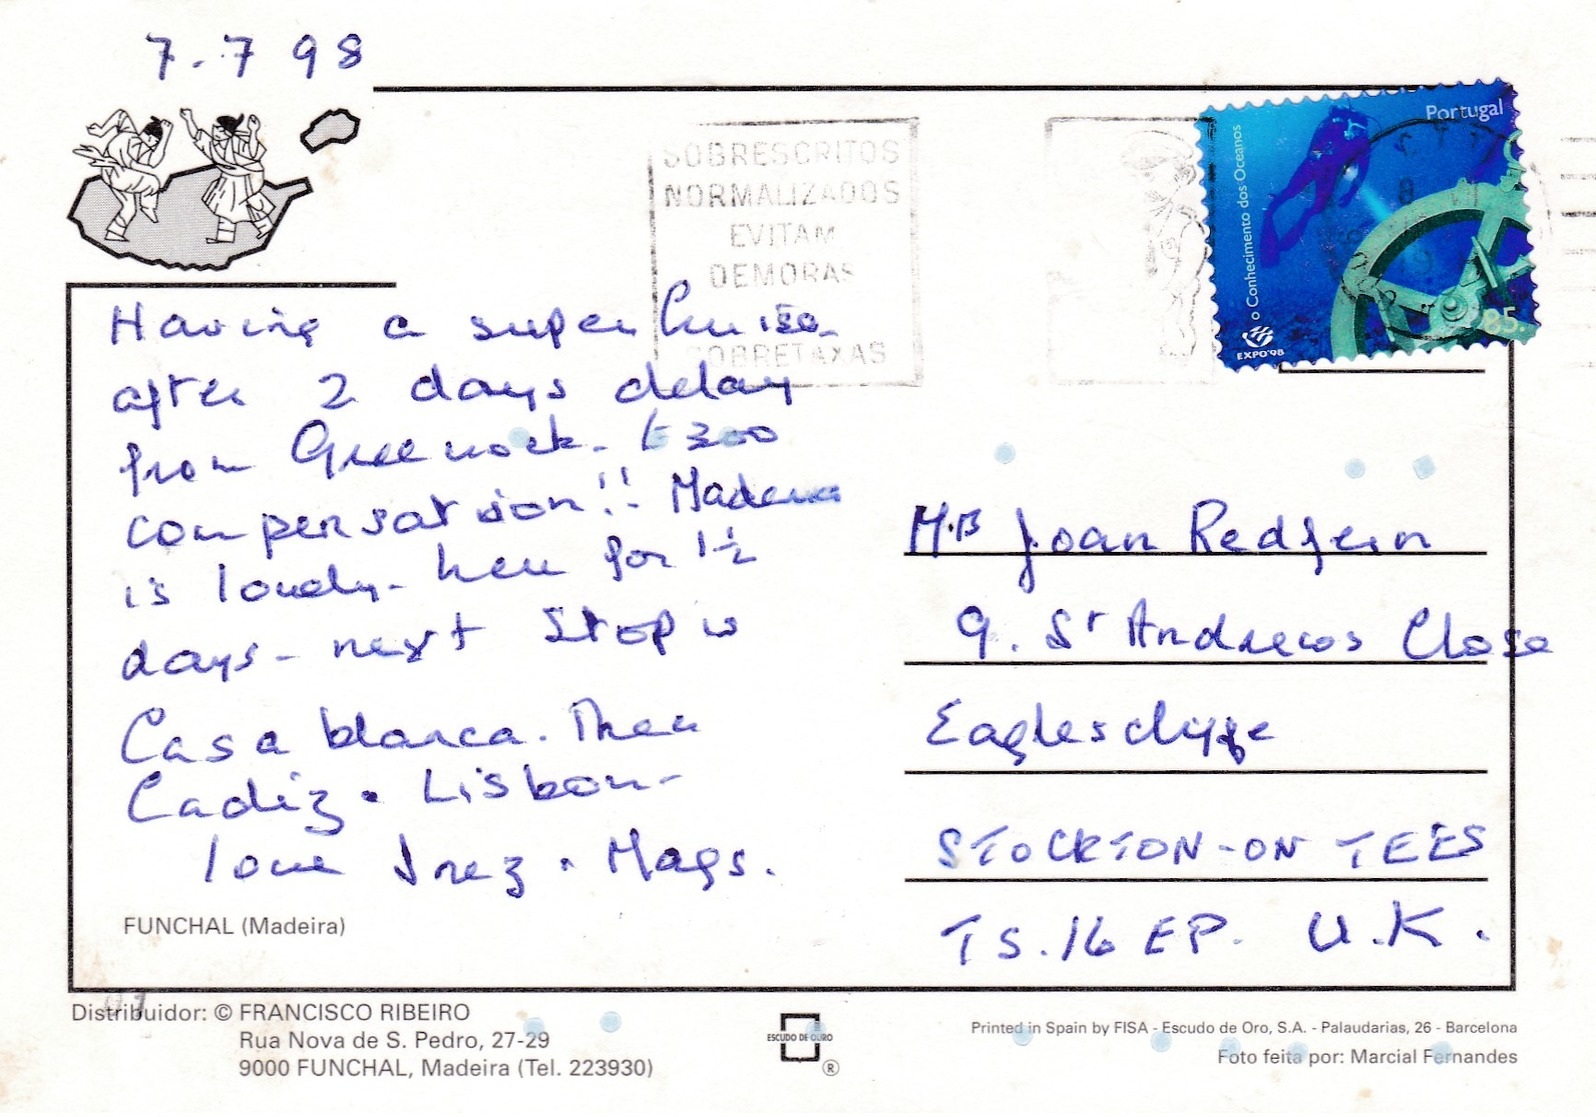 7.7 98
SOBRESCRITOS
NORMALIZADOS
EVITAM
DEMORAS
SOBRETAXAS
Portugal
o Conhecimento dos Oceanos
EXPO'98
85.
Having a super Cruise
after 2 days delay
from Greenock. £300
compensation!! Madeira
is lovely - here for 1½
days - next stop is
Casablanca. Then
Cadiz. Lisbon -
love Inez. Mags.
Mrs Joan Redfern
9. St Andrews Close
Eaglescliffe
STOCKTON-ON TEES
TS.16 EP. U.K.
FUNCHAL (Madeira)
Distribuidor: © FRANCISCO RIBEIRO
Rua Nova de S. Pedro, 27-29
9000 FUNCHAL, Madeira (Tel. 223930)
ESCUDO DE ORO
®
Printed in Spain by FISA - Escudo de Oro, S.A. - Palaudarias, 26 - Barcelona
Foto feita por: Marcial Fernandes